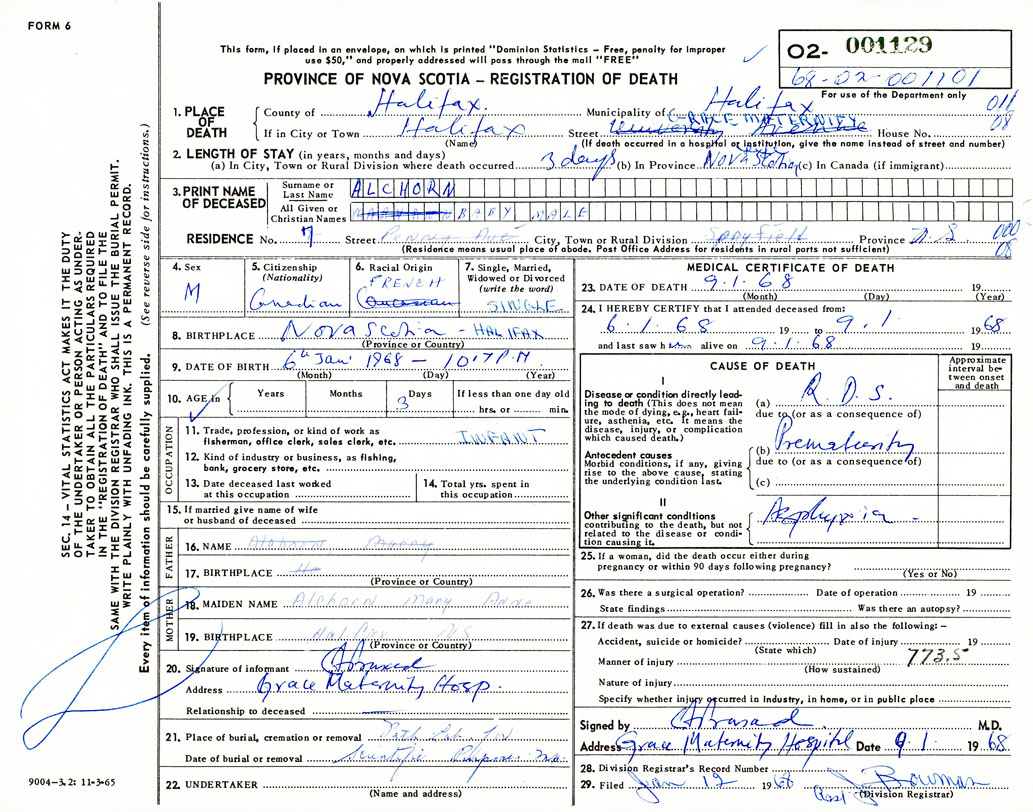 FORM 6
This form, if placed in an envelope, on which is printed "Dominion Statistics – Free, penalty for improper
use $50," and properly addressed will pass through the mail "FREE"
O2- 001129
68-02-001101
For use of the Department only
PROVINCE OF NOVA SCOTIA – REGISTRATION OF DEATH
011
08
1. PLACE OF DEATH
County of Halifax. Municipality of Halifax
GRACE MATERNITY
If in City or Town Halifax Street University Avenue House No.
(Name) (If death occurred in a hospital or institution, give the name instead of street and number)
2. LENGTH OF STAY (in years, months and days)
(a) In City, Town or Rural Division where death occurred 3 days (b) In Province Nova Scotia (c) In Canada (if immigrant)
3. PRINT NAME OF DECEASED
Surname or Last Name ALCHORN
All Given or Christian Names BABY MALE
RESIDENCE No. 7 Street Penny Ave City, Town or Rural Division Spryfield Province N.S
000
08
(Residence means usual place of abode. Post Office Address for residents in rural parts not sufficient)
4. Sex
M
5. Citizenship
(Nationality)
Canadian
6. Racial Origin
FRENCH
Caucasian
7. Single, Married,
Widowed or Divorced
(write the word)
SINGLE
8. BIRTHPLACE Nova Scotia - HALIFAX
(Province or Country)
9. DATE OF BIRTH 6th Jan 1968 – 10:7 P.M
(Month) (Day) (Year)
10. AGE in Years Months Days If less than one day old
3 hrs. or min.
OCCUPATION
11. Trade, profession, or kind of work as
fisherman, office clerk, sales clerk, etc. INFANT
12. Kind of industry or business, as fishing,
bank, grocery store, etc.
13. Date deceased last worked
at this occupation
14. Total yrs. spent in
this occupation
15. If married give name of wife
or husband of deceased
FATHER
16. NAME Alchorn
17. BIRTHPLACE
(Province or Country)
MOTHER
18. MAIDEN NAME Alchorn Mary Anne
19. BIRTHPLACE Halifax NS
(Province or Country)
20. Signature of informant
Address Grace Maternity Hosp.
Relationship to deceased
21. Place of burial, cremation or removal Path Lab for
Date of burial or removal Scientific Purposes
22. UNDERTAKER
(Name and address)
MEDICAL CERTIFICATE OF DEATH
23. DATE OF DEATH 9.1.68 19
(Month) (Day) (Year)
24. I HEREBY CERTIFY that I attended deceased from:
6.1.68 19 to 9.1 1968
and last saw him alive on 9.1.68 19
CAUSE OF DEATH
Approximate interval between onset and death
I
Disease or condition directly leading to death (This does not mean the mode of dying, e.g., heart failure, asthenia, etc. It means the disease, injury, or complication which caused death.)
(a) R.D.S.
due to (or as a consequence of)
Antecedent causes
Morbid conditions, if any, giving rise to the above cause, stating the underlying condition last.
(b) Prematurity
due to (or as a consequence of)
(c)
II
Other significant conditions
contributing to the death, but not related to the disease or condition causing it.
Asphyxia -
25. If a woman, did the death occur either during
pregnancy or within 90 days following pregnancy?
(Yes or No)
26. Was there a surgical operation? Date of operation 19
State findings Was there an autopsy?
27. If death was due to external causes (violence) fill in also the following: –
Accident, suicide or homicide? Date of injury 19
(State which)
773.5
Manner of injury
(How sustained)
Nature of injury
Specify whether injury occurred in industry, in home, or in public place
Signed by M.D.
Address Grace Maternity Hospital Date 9.1 1968
28. Division Registrar's Record Number
29. Filed Jan 12 1968 J. Bowman
(Division Registrar)
SEC. 14 – VITAL STATISTICS ACT MAKES IT THE DUTY
OF THE UNDERTAKER OR PERSON ACTING AS UNDER-
TAKER TO OBTAIN ALL THE PARTICULARS REQUIRED
IN THE "REGISTRATION OF DEATH" AND TO FILE THE
SAME WITH THE DIVISION REGISTRAR WHO SHALL ISSUE THE BURIAL PERMIT.
WRITE PLAINLY WITH UNFADING INK. THIS IS A PERMANENT RECORD.
Every item of information should be carefully supplied. (See reverse side for instructions.)
9004–3.2: 11-3-65